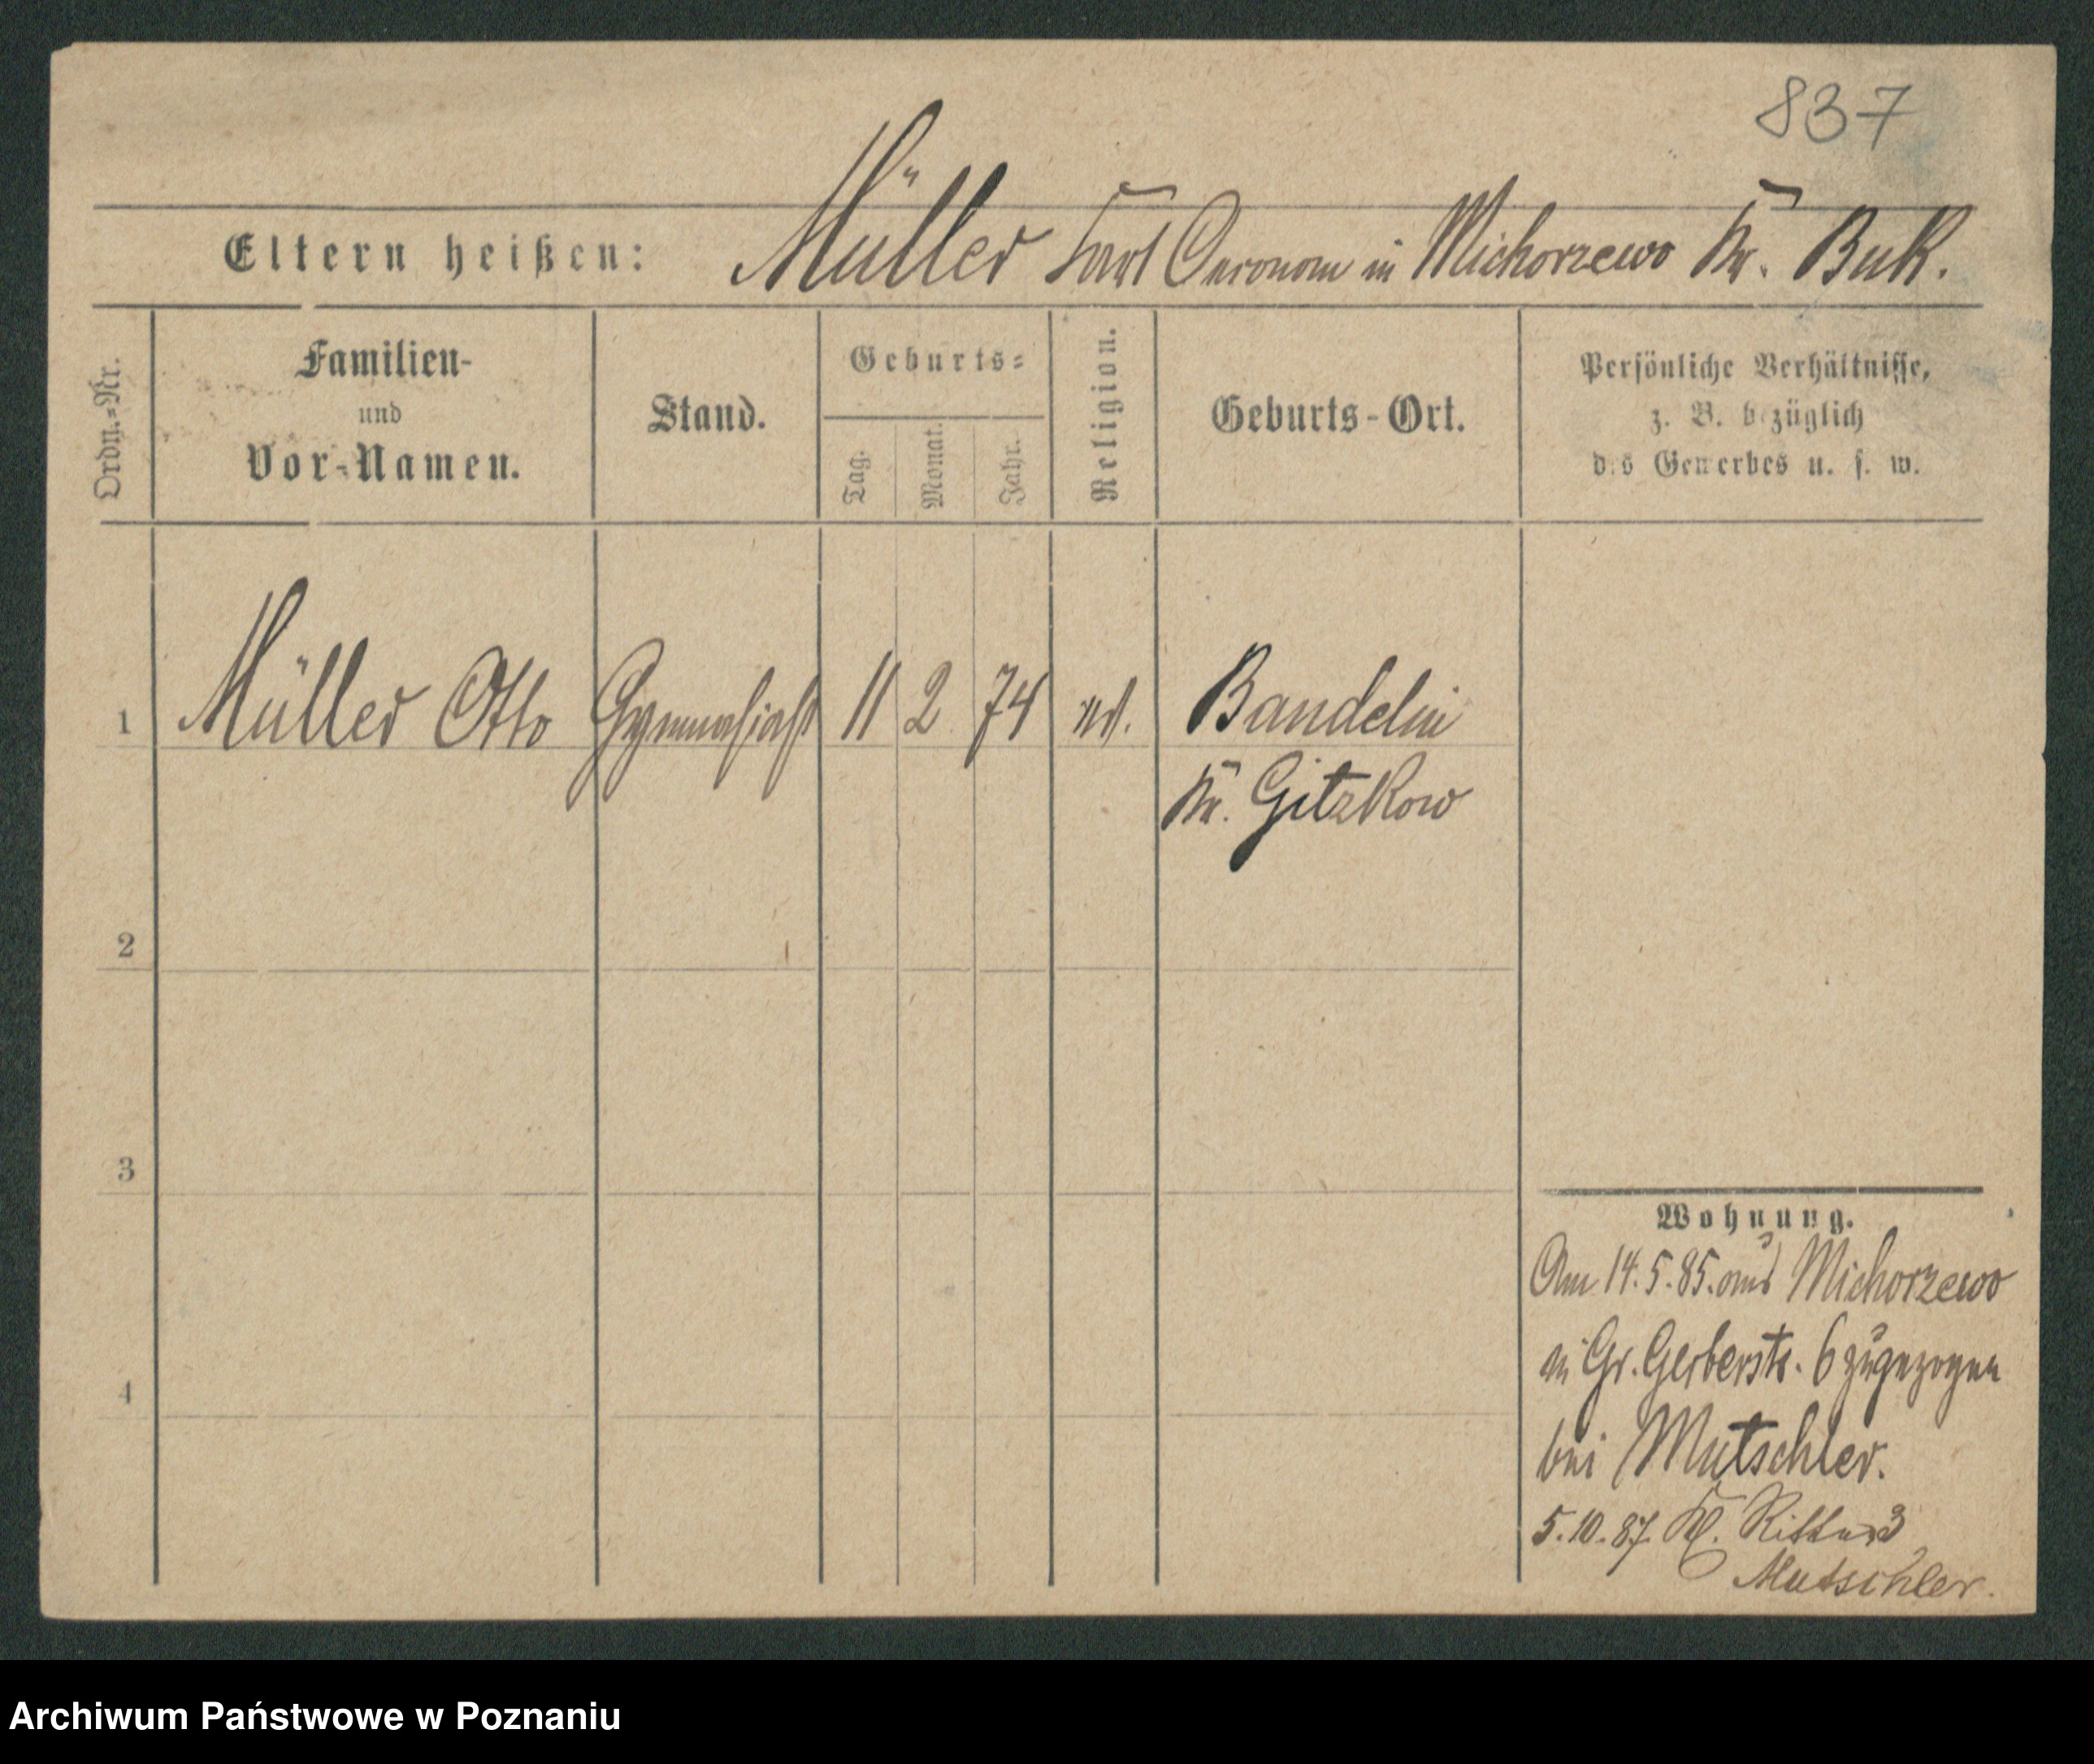 837
Eltern heißen: Müller Karl Oeconom in Michorzewo Kr. Buk.
Ordn.=Nr.
Familien-
und
Vor-Namen.
Stand.
Geburts=
Tag.
Monat.
Jahr.
Religion.
Geburts-Ort.
Persönliche Verhältnisse,
z. B. bezüglich
des Gewerbes u. s. w.
1 Müller Otto Gymnasiast 11 2 74 Bandelin
Kr. Gitzkow
2
3
4
Wohnung.
Am 14.5.85. aus Michorzewo
in Gr. Gerberstr. 6 zugezogen
bei Mutschler.
5.10.87. Kl. Ritter 3
Mutschler.
Archiwum Państwowe w Poznaniu